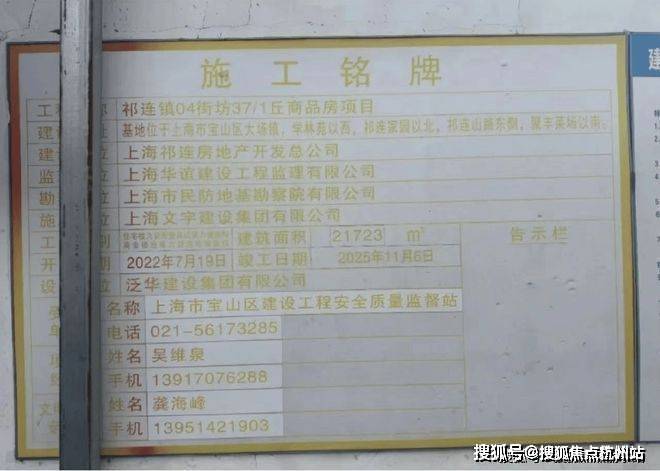 施工铭牌
工 称 祁连镇04街坊37/1丘商品房项目
建 址 基地位于上海市宝山区大场镇，学林苑以西，祁连家园以北，祁连山路东侧，聚丰菜场以南。
建 位 上海祁连房地产开发总公司
监 位 上海华谊建设工程监理有限公司
勘 位 上海市民防地基勘察院有限公司
施 位 上海文宇建设集团有限公司
工 别 建筑面积 21723 m² 告示栏
开 期 2022年7月19日 竣工日期 2025年11月6日
设 位 泛华建设集团有限公司
名称 上海市宝山区建设工程安全质量监督站
单 电话 021-56173285
项 姓名 吴维泉
经 手机 13917076288
文 姓名 龚海峰
手机 13951421903
建
搜狐号@搜狐焦点杭州站